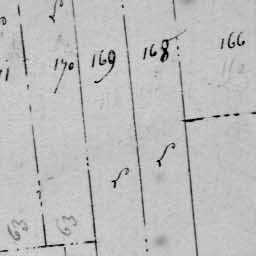 170 169 168 166
63 63